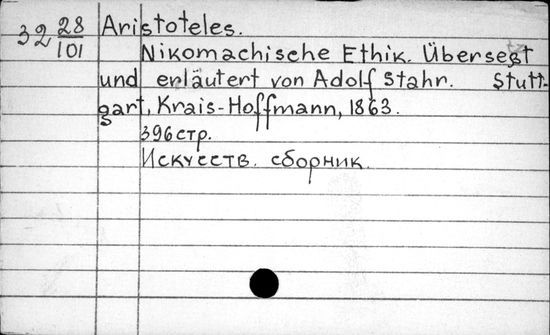 32 28/101 Aristoteles.
Nikomachische Ethik. Überseßt
und erläutert von Adolf Stahr. Stutt-
gart, Krais-Hoffmann, 1863.
396 стр.
Искусств. сборник.